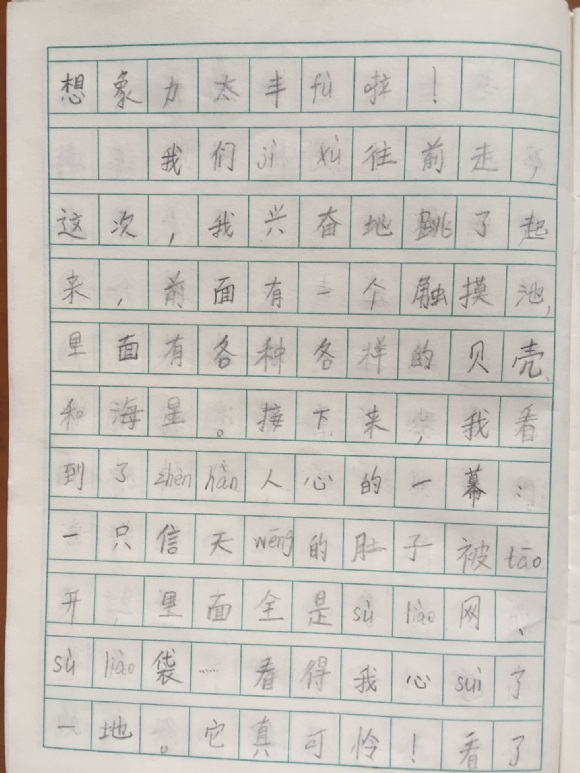 想象力太丰fù啦！
我们jì xù往前走，
这次，我兴奋地跳了起
来，前面有一个触摸池，
里面有各种各样的贝壳
和海星。接下来，我看
到了zhèn hàn人心的一幕：
一只信天wēng的肚子被tāo
开，里面全是sù liào网、
sù liào袋……看得我心suì了
一地。它真可怜！看了